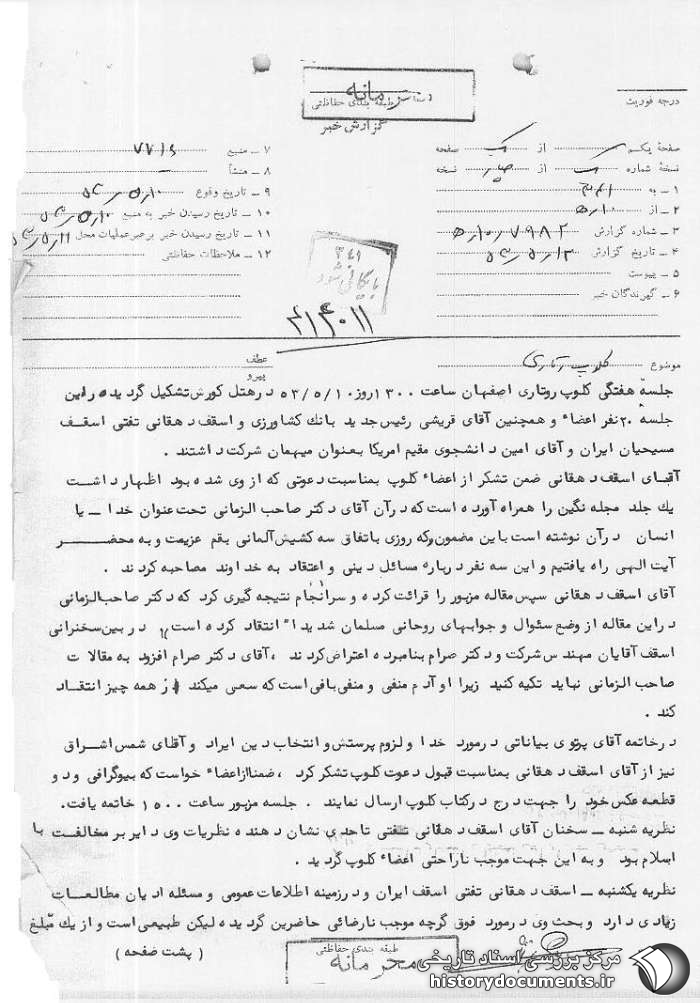 محرمانه
طبقه بندی حفاظتی
گزارش خبر
درجه فوریت
صفحهٔ یکم از یک صفحه
نسخهٔ شماره از چهار نسخه
۱ – به
۲ – از ۱۰ه
۳ – شماره گزارش ۷۹۸۲/۱۰ه
۴ – تاریخ گزارش ۵۳/۵/۱۳
۵ – پیوست
۶ – گیرندگان خبر
۷ – منبع
۸ – منشأ –
۹ – تاریخ وقوع ۵۳/۵/۱۰
۱۰ – تاریخ رسیدن خبر به منبع ۵۳/۵/۱۰
۱۱ – تاریخ رسیدن خبر برهبرعملیات محل ۵۳/۵/۱۱
۱۲ – ملاحظات حفاظتی
۳۴۱
بایگانی شود
موضوع کلوپ روتاری
عطف
پیرو
جلسهٔ هفتگی کلوپ روتاری اصفهان ساعت ۱۳۰۰ روز ۵۳/۵/۱۰ در هتل کورش تشکیل گردید در این
جلسه ۲۰ نفر اعضاء و همچنین آقای قریشی رئیس جدید بانک کشاورزی و اسقف دهقانی تفتی اسقف
مسیحیان ایران و آقای امین دانشجوی مقیم امریکا بعنوان میهمان شرکت داشتند .
آقای اسقف دهقانی ضمن تشکر از اعضاء کلوپ بمناسبت دعوتی که از وی شده بود اظهار داشت
یك جلد مجله نگین را همراه آورده است که در آن آقای دکتر صاحب الزمانی تحت عنوان خدا – یا
انسان در آن نوشته است باین مضمون که روزی باتفاق سه کشیش آلمانی بقم عزیمت و به محضر
آیت الهی راه یافتیم و این سه نفر درباره مسائل دینی و اعتقاد به خداوند مصاحبه کردند .
آقای اسقف دهقانی سپس مقاله مزبور را قرائت کرده و سرانجام نتیجه گیری کرد که دکتر صاحب الزمانی
در این مقاله از وضع سئوال و جوابهای روحانی مسلمان شدیدا" انتقاد کرده است در بین سخنرانی
اسقف آقایان مهندس شرکت و دکتر صرام بنامبرده اعتراض کردند ، آقای دکتر صرام افزود به مقالات
صاحب الزمانی نباید تکیه کنید زیرا او آدم منفی و منفی بافی است که سعی میکند از همه چیز انتقاد
کند .
در خاتمه آقای پرتوی بیاناتی در مورد خدا و لزوم پرستش و انتخاب دین ایراد و آقای شمس اشراق
نیز از آقای اسقف دهقانی بمناسبت قبول دعوت کلوپ تشکر کرد ، ضمنا از اعضاء خواست که بیوگرافی و دو
قطعه عکس خود را جهت درج در کتاب کلوپ ارسال نمایند . جلسه مزبور ساعت ۱۵۰۰ خاتمه یافت.
نظریه شنبه – سخنان آقای اسقف دهقانی تفتی تاحدی نشان دهنده نظریات وی دایر بر مخالفت با
اسلام بود و به این جهت موجب ناراحتی اعضاء کلوپ گردید .
نظریه یکشنبه – اسقف دهقانی تفتی اسقف ایران و در زمینه اطلاعات عمومی و مسئله ادیان مطالعات
زیادی دارد و بحث وی در مورد فوق گرچه موجب نارضائی حاضرین گردیده لیکن طبیعی است و از یك مبلغ
( پشت صفحه )
طبقه بندی حفاظتی
محرمانه
مرکز بررسی اسناد تاریخی
historydocuments.ir